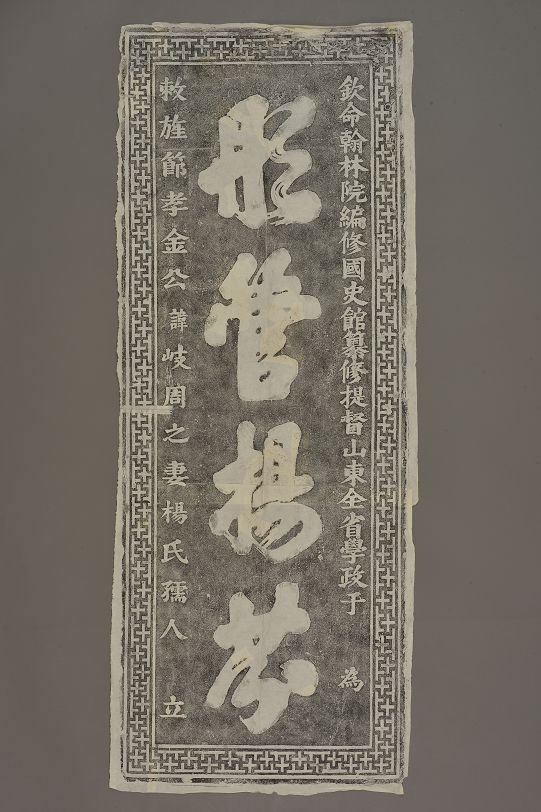 欽命翰林院編修國史館纂修提督山東全省學政于 為
彤管揚芬
敕旌節孝金公諱岐周之妻楊氏孺人 立